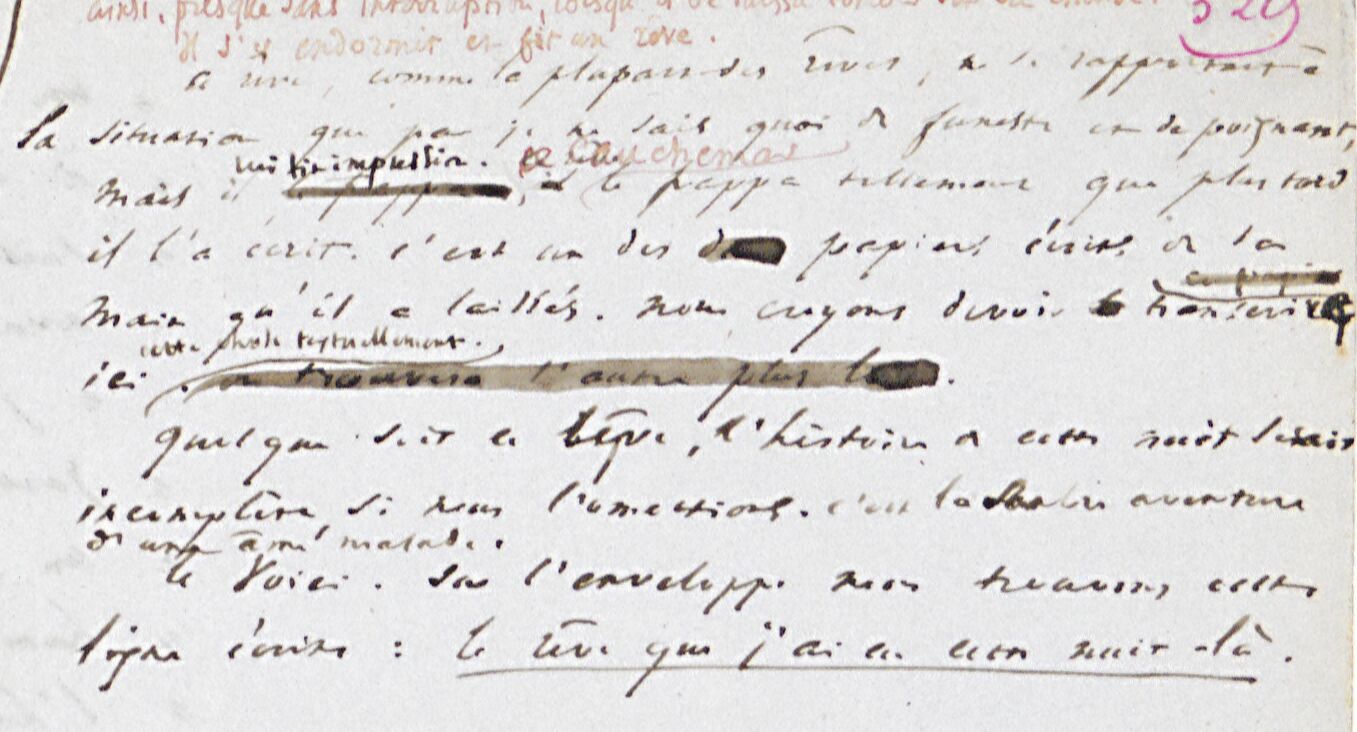 ainsi, presque sans interruption, lorsqu'il se laissa tomber sur sa chaise.
Il s'y endormit et fit un rêve.
329
ce rêve, comme la plupart des rêves, ne se rapportait à
la situation que par je ne sais quoi de funeste et de poignant,
lui fit impression. ce cauchemar
mais il le frappa tellement que plus tard
il l'a écrit. c'est un des papiers écrits de sa
main qu'il a laissés. nous croyons devoir transcrire
cette chose textuellement.
ici. on trouvera l'autre plus
quel que soit ce rêve, l'histoire de cette nuit serait
incomplète si nous l'omettions. c'est la sombre aventure
d'une âme malade.
le voici. Sur l'enveloppe nous trouvons cette
ligne écrite : le rêve que j'ai eu cette nuit-là.